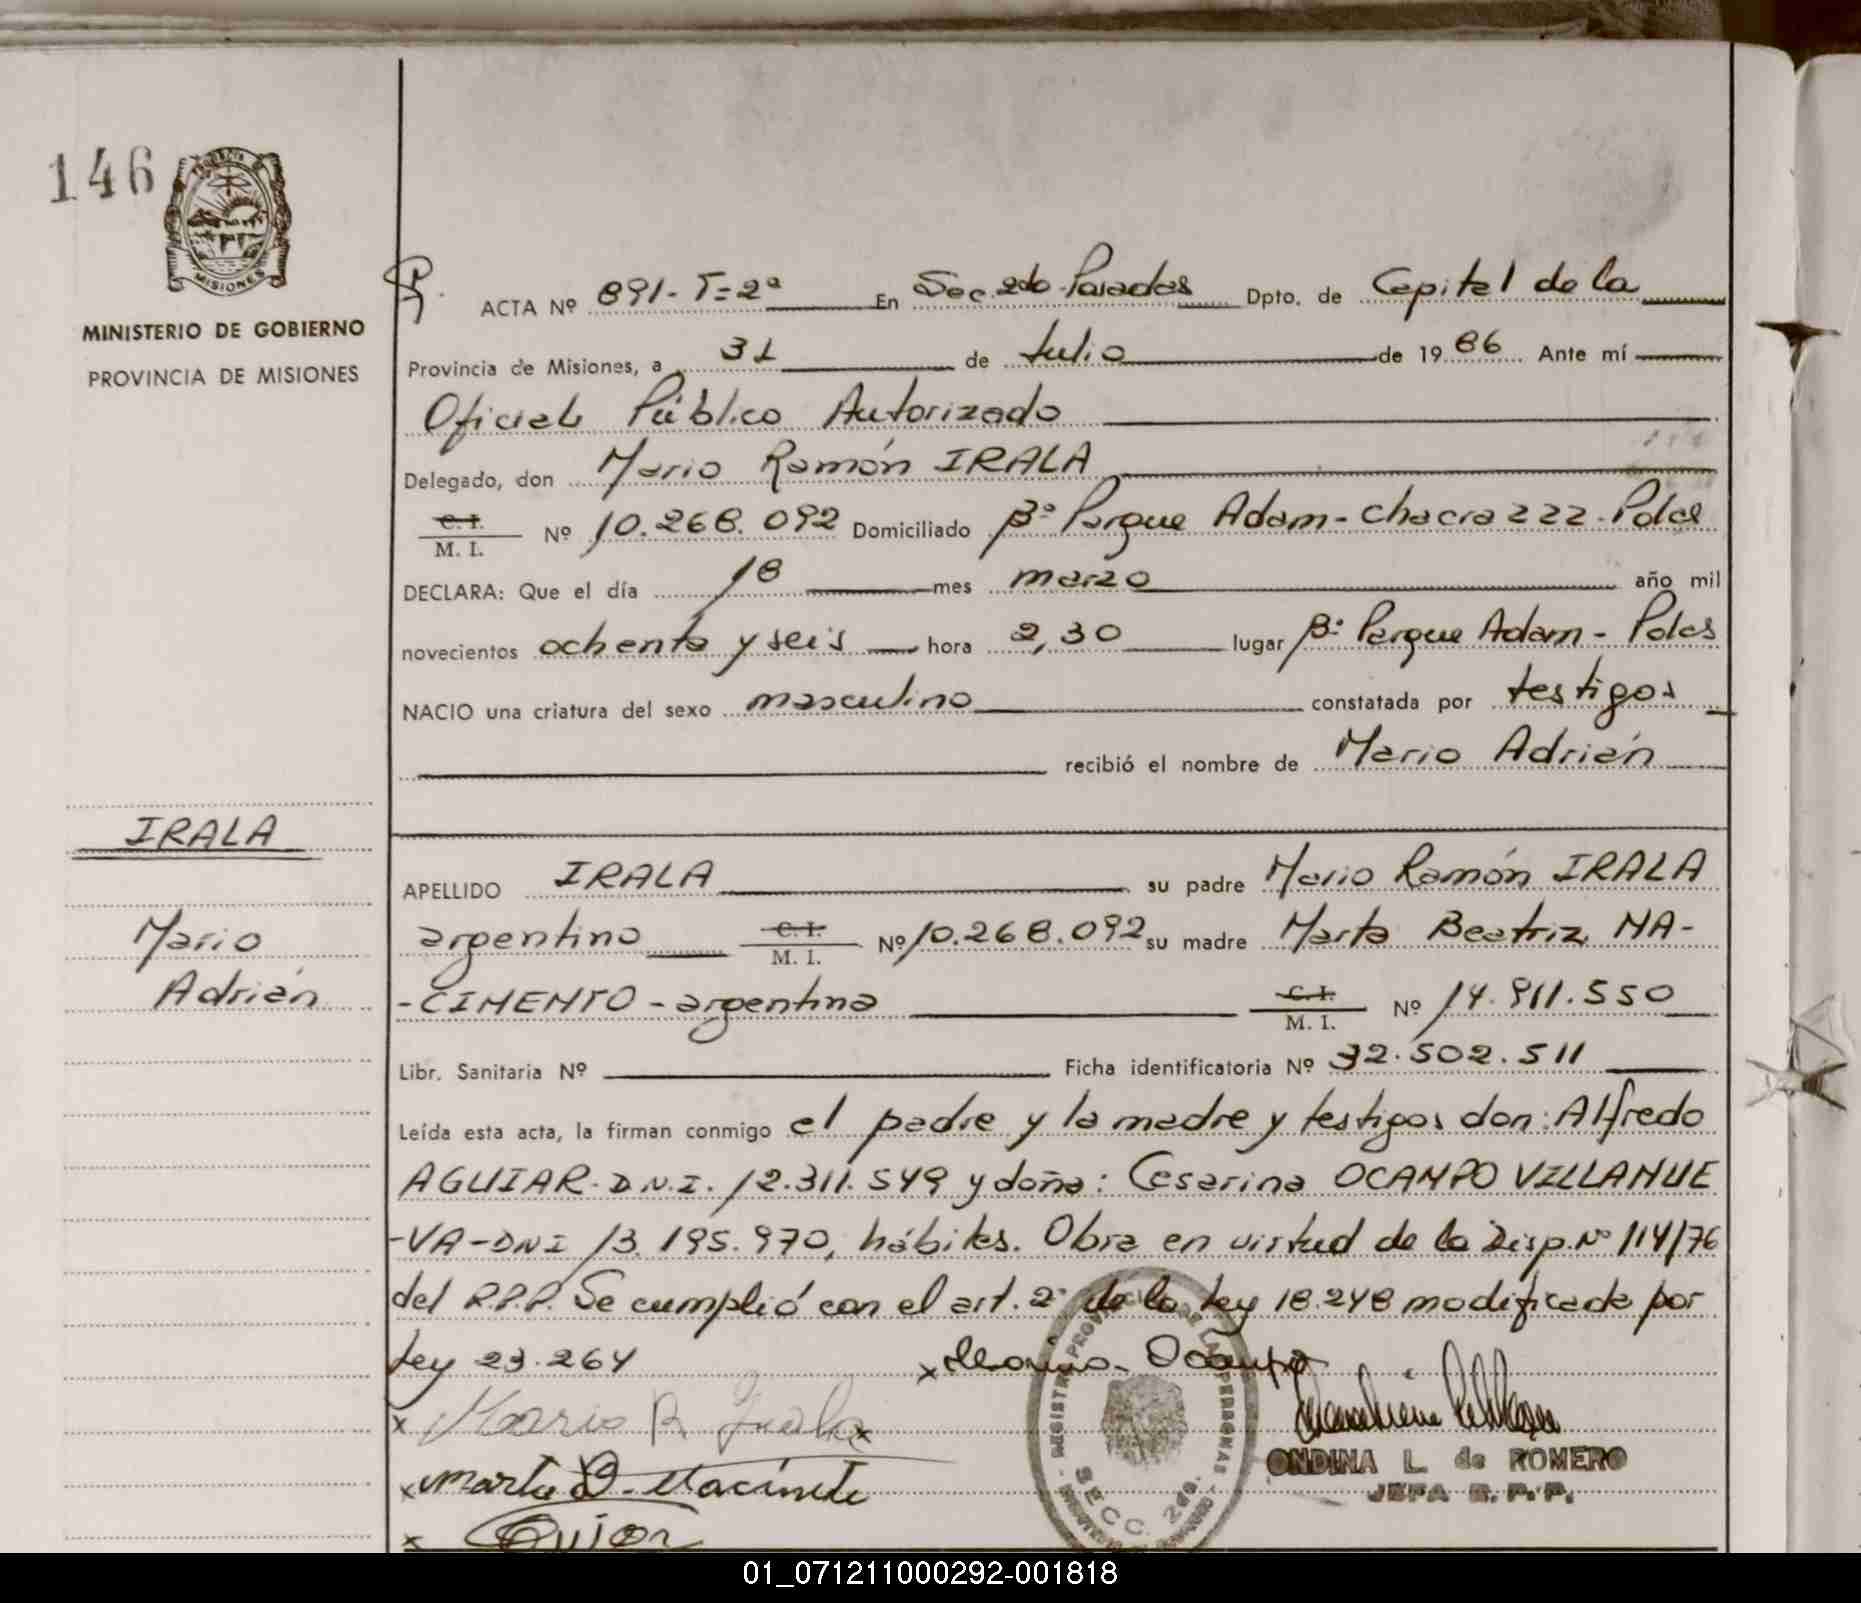 146
PROVINCIA DE
MISIONES
MINISTERIO DE GOBIERNO
PROVINCIA DE MISIONES
ACTA Nº 891-T=2ª En Sec. 2do Posadas Dpto. de Capital de la
Provincia de Misiones, a 31 de Julio de 1986 Ante mí
Oficial Público Autorizado
Delegado, don Mario Ramón IRALA
C. I.
M. I. Nº 10.268.092 Domiciliado Bº Parque Adam - Chacra 222 - Pdas
DECLARA: Que el día 18 mes marzo año mil
novecientos ochenta y seis hora 2,30 lugar Bº Parque Adam - Pdas
NACIO una criatura del sexo masculino constatada por testigos
recibió el nombre de Mario Adrián
IRALA
Mario
Adrián
APELLIDO IRALA su padre Mario Ramón IRALA
argentino C. I. M. I. Nº 10.268.092 su madre Marta Beatriz NA-
-CIMENTO - argentina C. I. M. I. Nº 14.911.550
Libr. Sanitaria Nº Ficha identificatoria Nº 32.502.511
Leída esta acta, la firman conmigo el padre y la madre y testigos don: Alfredo
AGUIAR - D.N.I. 12.311.549 y doña: Cesarina OCAMPO VILLANUE
-VA - DNI 13.195.970, hábiles. Obra en virtud de la Disp. Nº 114/76
del R.P.P. Se cumplió con el art. 2º de la Ley 18.248 modificada por
Ley 23.264
x Ocampo
x Mario R. Irala x
x Marta B.
x
REGISTRO PROVINCIAL DE LAS PERSONAS
SECC. 2da.
ONDINA L. de ROMERO
JEFA R. P. P.
01_071211000292-001818